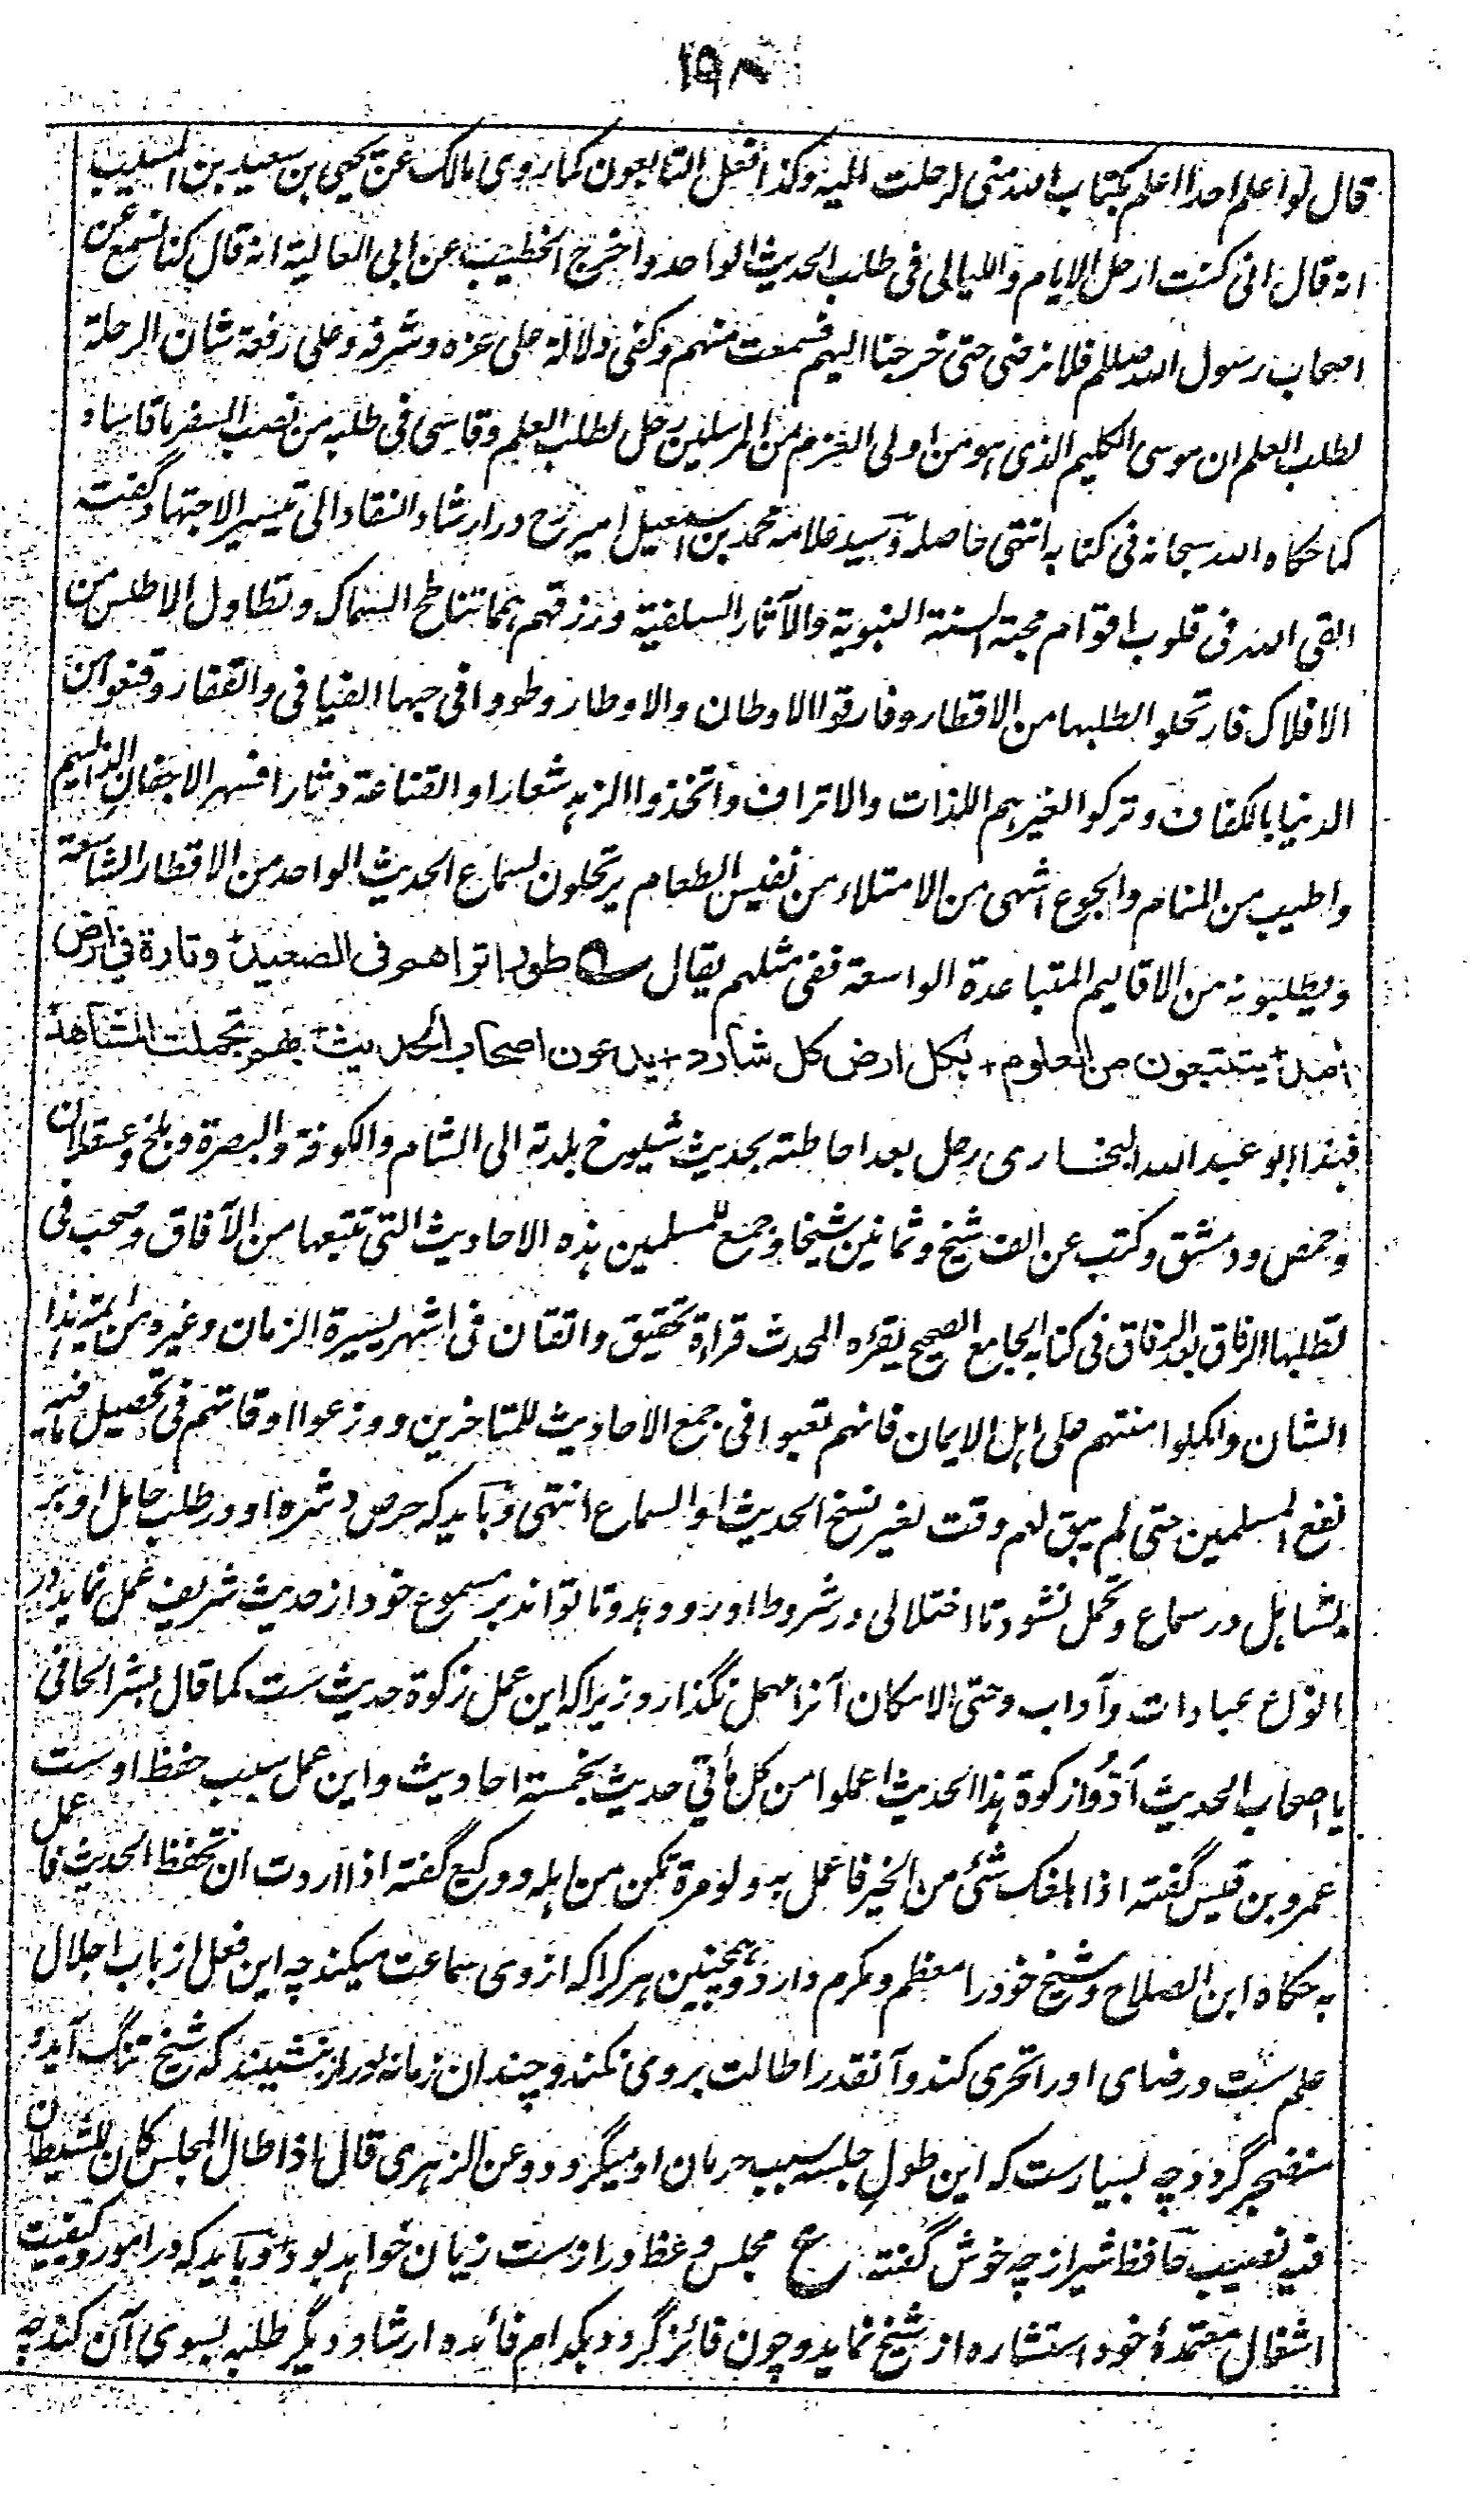 ۱۹۸
قال لو اعلم احدا اعلم بکتاب الله منی لرحلت الیه وکذا فعل التابعون کما روی مالک عن یحیی بن سعید بن المسیب
انه قال انی کنت ارحل الایام واللیالی فی طلب الحدیث الواحد واخرج الخطیب عن ابی العالیة انه قال کنا نسمع عن
اصحاب رسول الله صللم فلا نرضی حتی خرجنا الیهم فسمعت منهم وکفی دلالة علی عزه وشرفه وعلی رفعة شان الرحلة
لطلب العلم ان موسی الکلیم الذی هو من اولی العزم من المرسلین رحل لطلب العلم وقاسی فی طلبه من نصب السفر ما قاساه
کما حکاه الله سبحانه فی کتابه انتهی حاصله وسید علامه محمد بن اسمعیل امیر رح در ارشاد النقاد الی تیسیر الاجتهاد گفته
القی الله فی قلوب اقوام محبة السنة النبویة والآثار السلفیة ورزقهم همما تناطح السماک وتطاول الاطلس من
الافلاک فارتحلوا لطلبها من الاقطار وفارقوا الاوطان والاوطار وطووا فی حبها الفیافی والقفار وقنعوا من
الدنیا بالکفاف وترکوا لغیرهم اللذات والاتراف واتخذوا الزهد شعارا والقناعة دثارا فسهر الاجفان الذ الیهم
واطیب من المنام والجوع اشهی من الامتلاء من نفیس الطعام یرتحلون لسماع الحدیث الواحد من الاقطار الشاسعة
ویطلبونه من الاقالیم المتباعدة الواسعة ففی مثلهم یقال طورا تراهم فی الصعید + وتارة فی ارض
آمد + یتتبعون من العلوم + بکل ارض کل شارد + یدعون اصحاب الحدیث + بهم تجملت المشاهد
فهذا ابو عبد الله البخاری رحل بعد احاطته بحدیث شیوخ بلدته الی الشام والکوفة والبصرة وبلخ وعسقلان
وحمص ودمشق وکتب عن الف شیخ وثمانین شیخا وجمع للمسلمین هذه الاحادیث التی تتبعها من الآفاق وصحب فی
تطلبها الرفاق بعد الرفاق فی کتابه الجامع الصحیح یقرءه المحدث قراءة تحقیق واتقان فی اشهر یسیرة الزمان وغیره من ائمة هذا
الشان واکملوا منتهم علی اهل الایمان فانهم تعبوا فی جمع الاحادیث للمتاخرین ووزعوا اوقاتهم فی تحصیل ما فیه
نفع المسلمین حتی لم یبق لهم وقت لغیر نسخ الحدیث او السماع انتهی وباید که حرص وشره او در طلب حامل او بر
تساهل در سماع وتحمل نشود تا اختلالی در شروط او رو ندهد وتا تواند بر مسموع خود از حدیث شریف عمل نماید در
انواع عبادات وآداب وحتی الامکان آنرا مهمل نگذارد زیرا که این عمل زکوة حدیث ست کما قال بشر الحافی
یا اصحاب الحدیث ادوا زکوة هذا الحدیث اعملوا من کل مأتی حدیث بخمسة احادیث واین عمل سبب حفظ اوست
عمرو بن قیس گفته اذا بلغک شئ من الخیر فاعمل به ولو مرة تکن من اهله ووکیع گفته اذا اردت ان تحفظ الحدیث فاعمل
به حکاه ابن الصلاح وشیخ خود را معظم ومکرم دارد وهمچنین هر کرا که از وی سماعت میکند چه این فعل از باب اجلال
علم ست ورضای او را تحری کند وآنقدر اطالت بر وی نکند وچندان زمانه دراز ننشیند که شیخ تنگ آید و
متضجر گردد چه بسیارست که این طول جلسه سبب حرمان او میگردد وعن الزهری قال اذا طال المجلس کان للشیطان
فیه نصیب حافظ شیراز چه خوش گفته ع مجلس وعظ درازست زیان خواهد بود وباید که در امور وکیفیت
اشغال معتمدۀ خود استشاره از شیخ نماید وچون فائز گردد بکدام فائده ارشاد دیگر طلبه بسوی آن کند چه